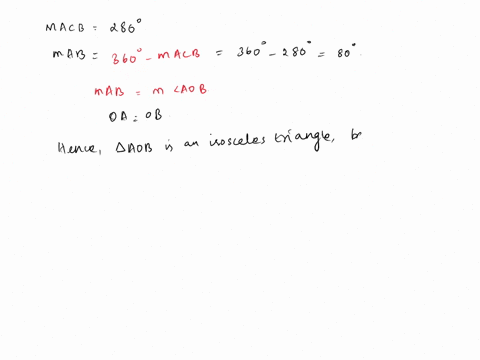 MACB = 280°
mAB = 360° - mACB = 360° - 280° = 80°.
mAB = m<AOB
OA = OB
Hence, ΔAOB is an isosceles triangle, b